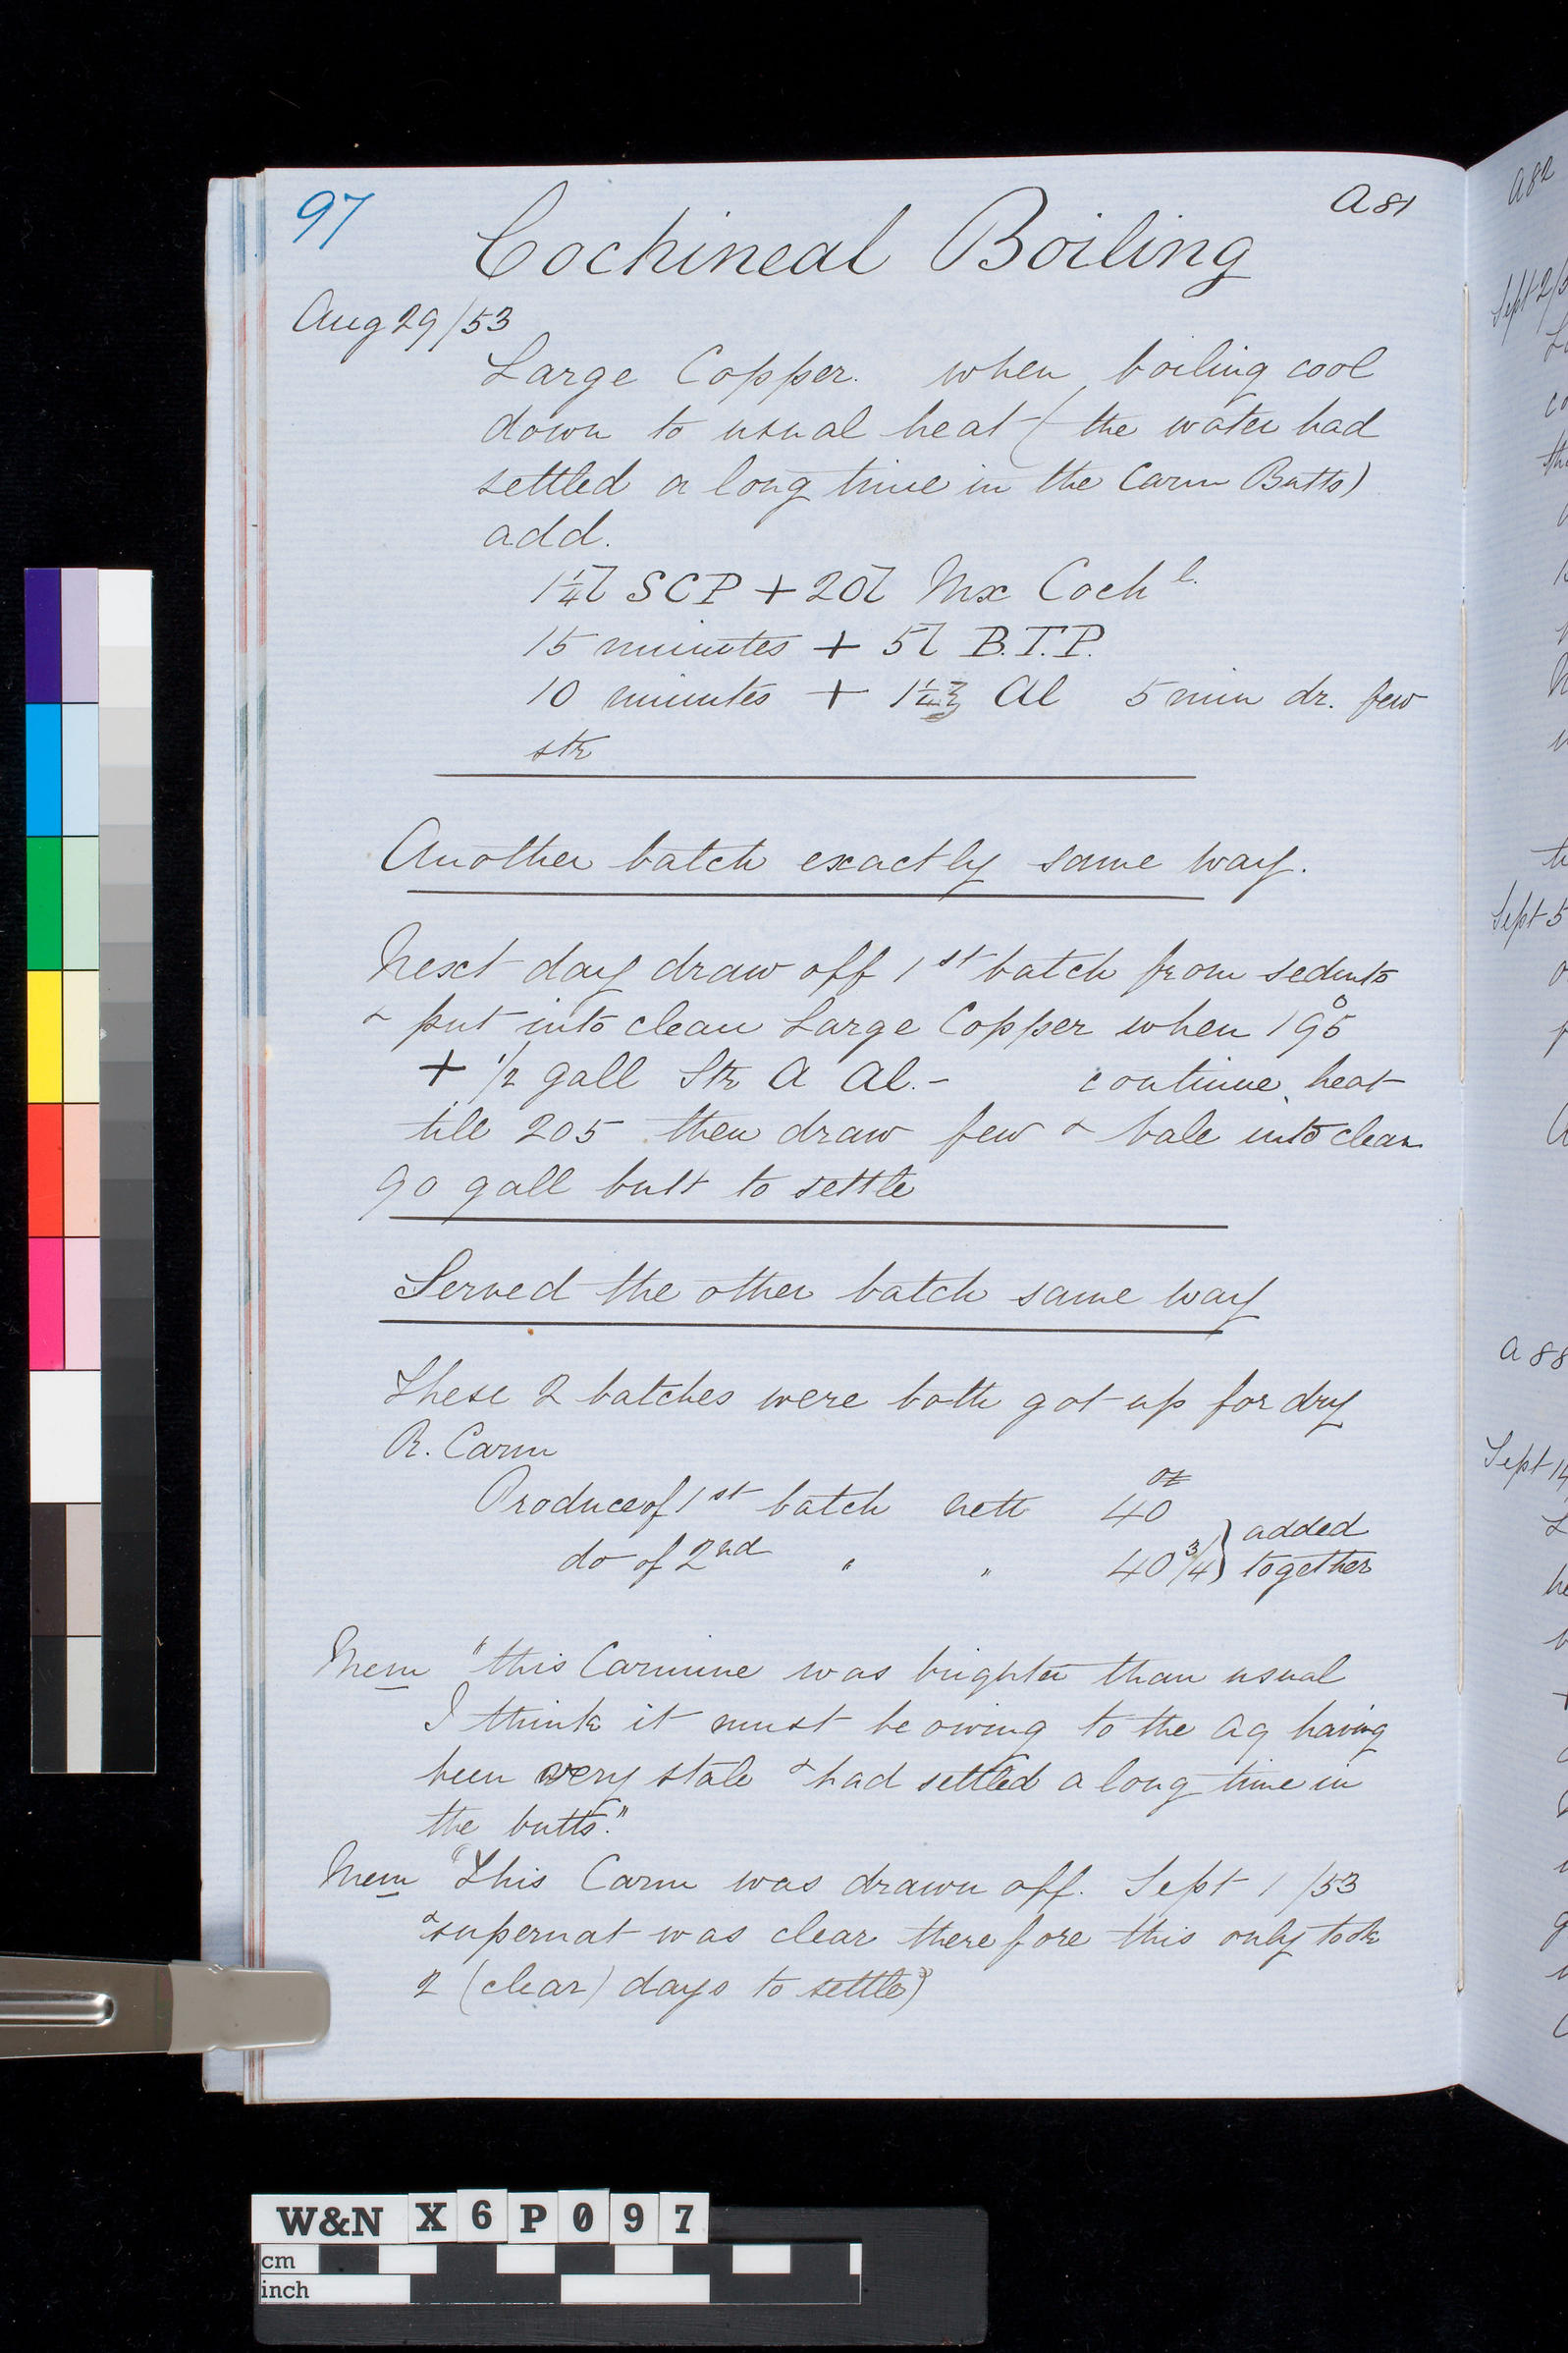 97
A 81
Cochineal Boiling
Aug 29/53
Large Copper. when boiling cool
down to usual heat (the water had
settled a long time in the Carm Butts)
add.
1¼ l SCP + 20 l Mx Coch l.
15 minutes + 5 l B.T.P.
10 minutes + 1¼ ℥ Al 5 min dr. few
str
Another batch exactly same way.
Next day draw off 1st batch from sedmts
& put into clean Large Copper when 195°
+ 1/2 gall Str A Al. - continue heat
till 205 then draw few & bale into clean
90 gall butt to settle
Served the other batch same way
These 2 batches were both got up for dry
R. Carm
oz
Produce of 1st batch nett 40
do of 2nd " " 40 3/4 } added
together
Mem "this Carmine was brighter than usual
I think it must be owing to the Aq having
been very stale & had settled a long time in
the butts."
Mem "This Carm was drawn off. Sept 1/53
& supernat was clear therefore this only took
2 (clear) days to settle"
A 82
Sept 2/5
Sept 5
A 88
Sept 14
W&N X 6 P 0 9 7
cm
inch